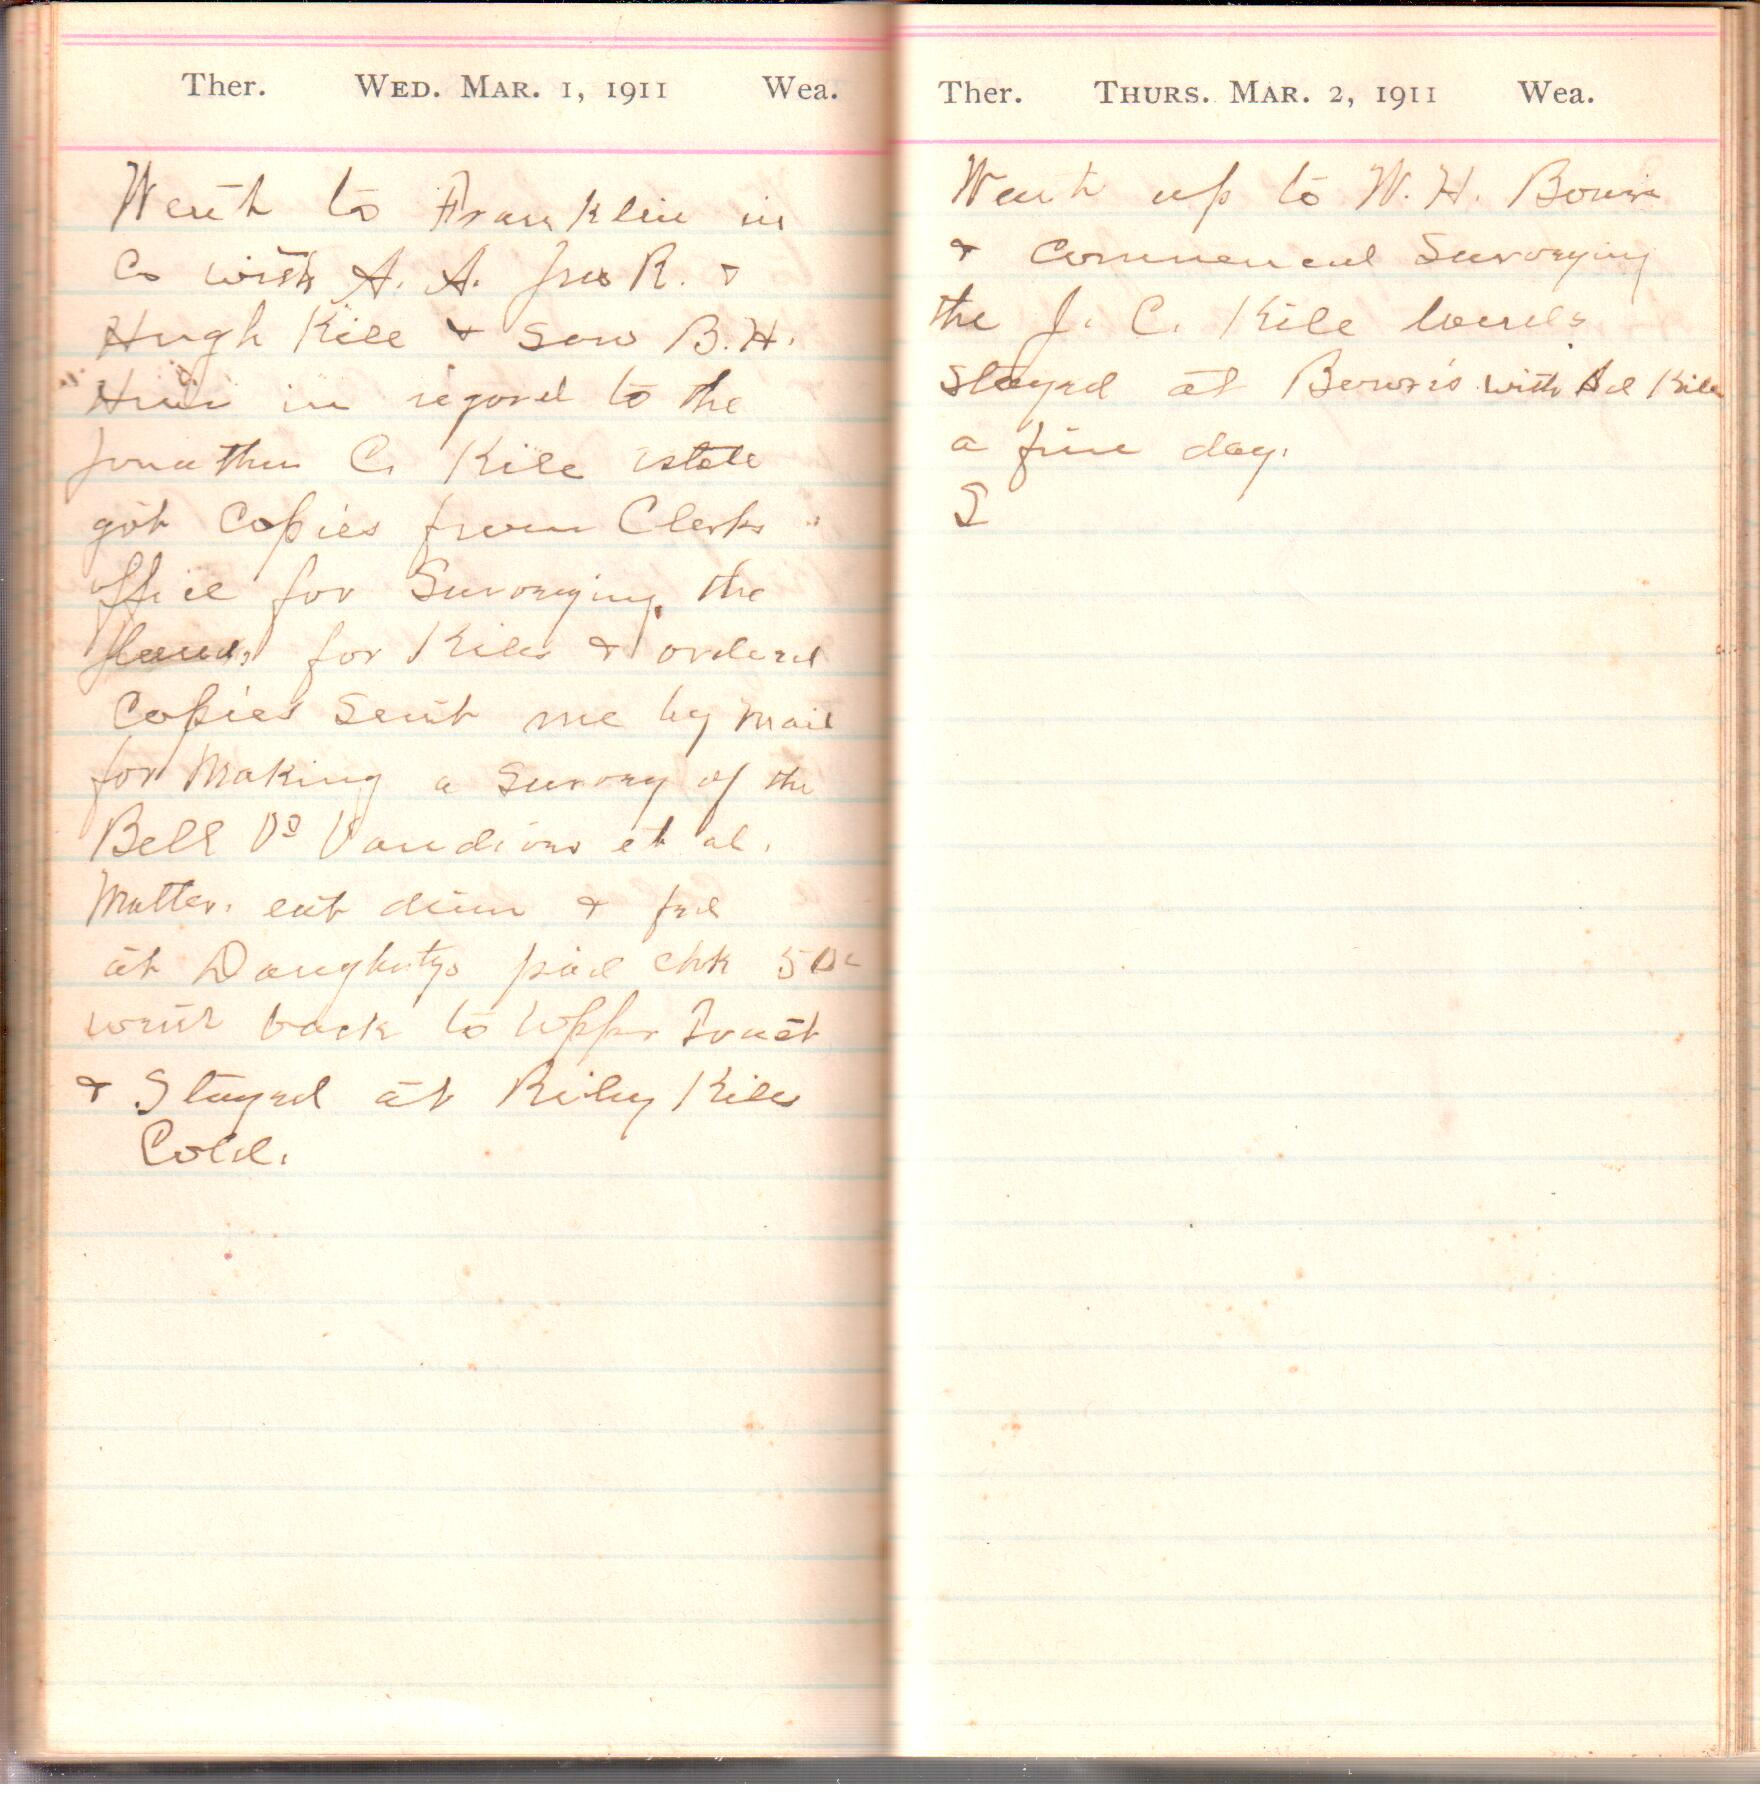 Ther. WED. MAR. 1, 1911 Wea.
Went to Franklin in
Co with A. A. Jno R. &
Hugh Kile & saw B. H.
in regard to the
Jonathan C. Kile estate
got Copies from Clerks
office for Surveying the
for Kiles & ordered
Copies Sent me by mail
for Making a Survey of the
Bell Vs Vandivers et al.
Matter. eat & fed
at paid chk 50c
went back to Upper Tract
& Stayed at Riley Kiles
Cold.
Ther. THURS. MAR. 2, 1911 Wea.
Went up to W. H.
& Commenced Surveying
the J. C. Kile lands
stayed at with Kile
a fine day.
S